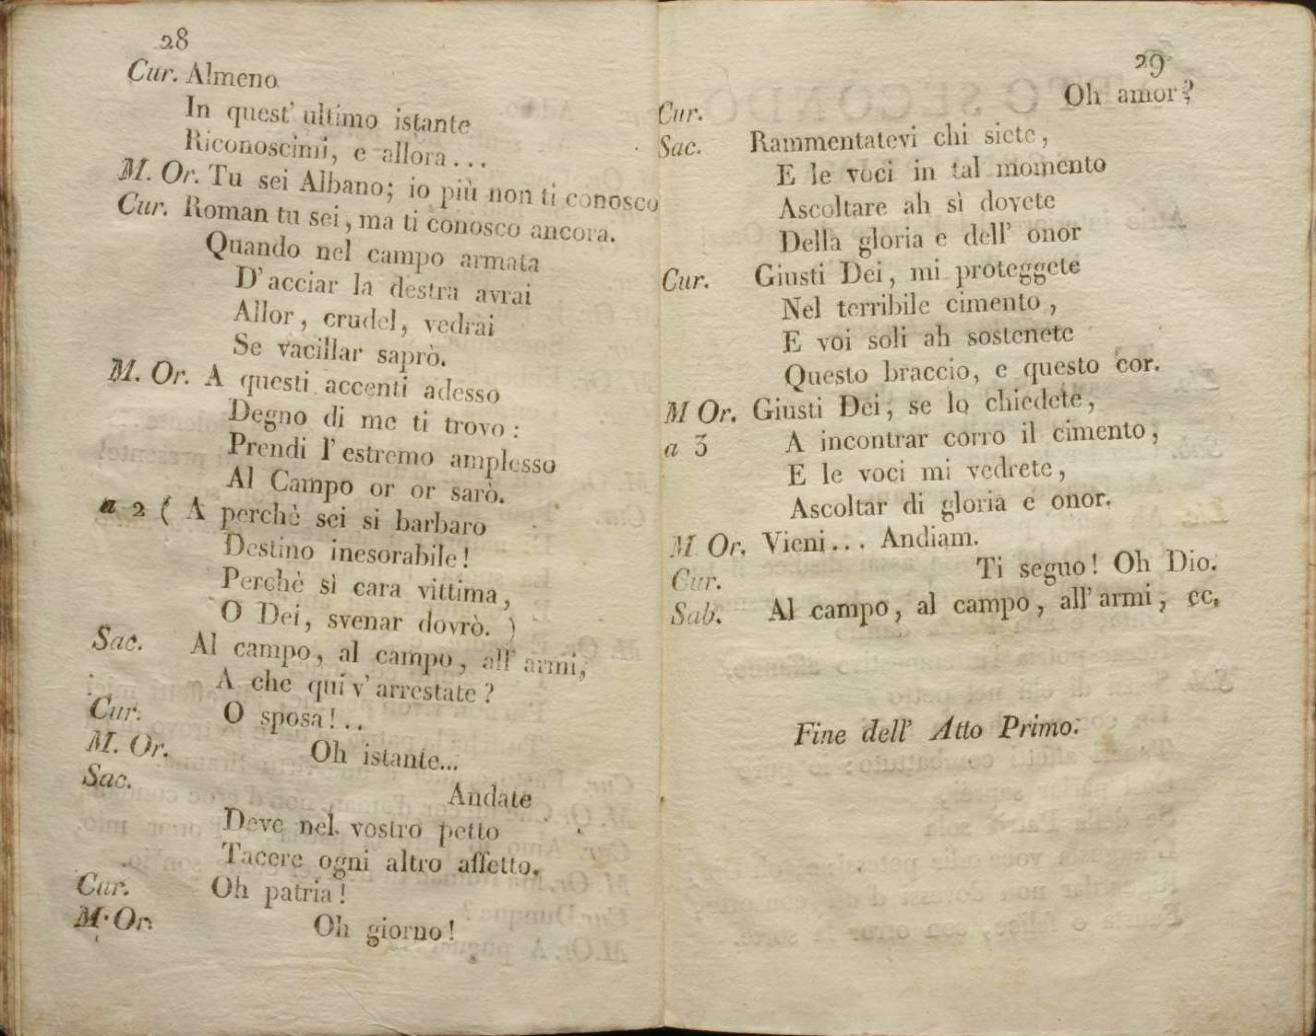 28
Cur. Almeno
In quest' ultimo istante
Riconoscimi, e allora...
M. Or. Tu sei Albano; io più non ti conosco
Cur. Roman tu sei, ma ti conosco ancora.
Quando nel campo armata
D'acciar la destra avrai
Allor, crudel, vedrai
Se vacillar saprò.
M. Or. A questi accenti adesso
Degno di me ti trovo:
Prendi l'estremo amplesso
Al Campo or or sarò.
a 2 ( A perchè sei si barbaro
Destino inesorabile!
Perchè sì cara vittima,
O Dei, svenar dovrò. )
Sac. Al campo, al campo, all' armi,
A che qui v'arrestate?
Cur. O sposa!..
M. Or. Oh istante...
Sac. Andate
Deve nel vostro petto
Tacere ogni altro affetto.
Cur. Oh patria!
M. Or. Oh giorno!
29
Cur. Oh amor?
Sac. Rammentatevi chi siete,
E le voci in tal momento
Ascoltare ah sì dovete
Della gloria e dell' onor
Cur. Giusti Dei, mi proteggete
Nel terribile cimento,
E voi soli ah sostenete
Questo braccio, e questo cor.
M Or. Giusti Dei, se lo chiedete,
a 3 A incontrar corro il cimento,
E le voci mi vedrete,
Ascoltar di gloria e onor.
M Or. Vieni... Andiam.
Cur. Ti seguo! Oh Dio.
Sab. Al campo, al campo, all' armi, ec,
Fine dell' Atto Primo.